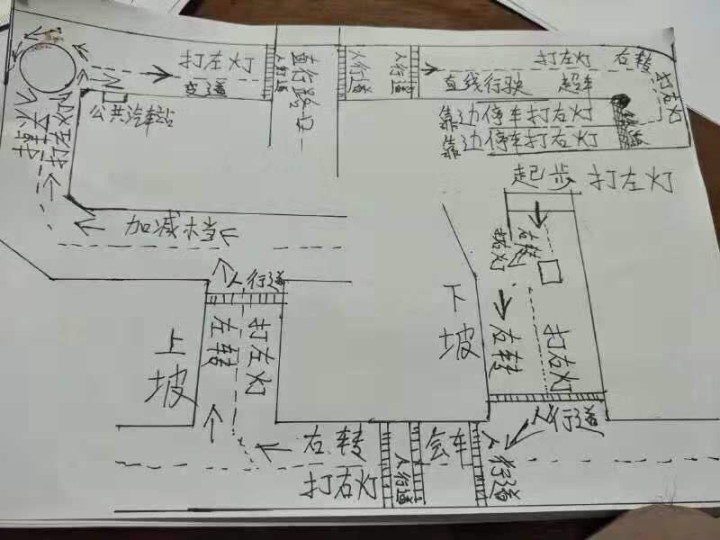 打左灯
变道
公共汽车站
人行道
直行路口
人行道
人行道
打左灯
右转
直线行驶
超车
打左灯
靠边停车打右灯
靠边停车打右灯
起步打左灯
加减档
人行道
上坡
左转
打左灯
下坡
右转
打右灯
右转
打右灯
人行道
右转
打右灯
人行道
会车
人行道